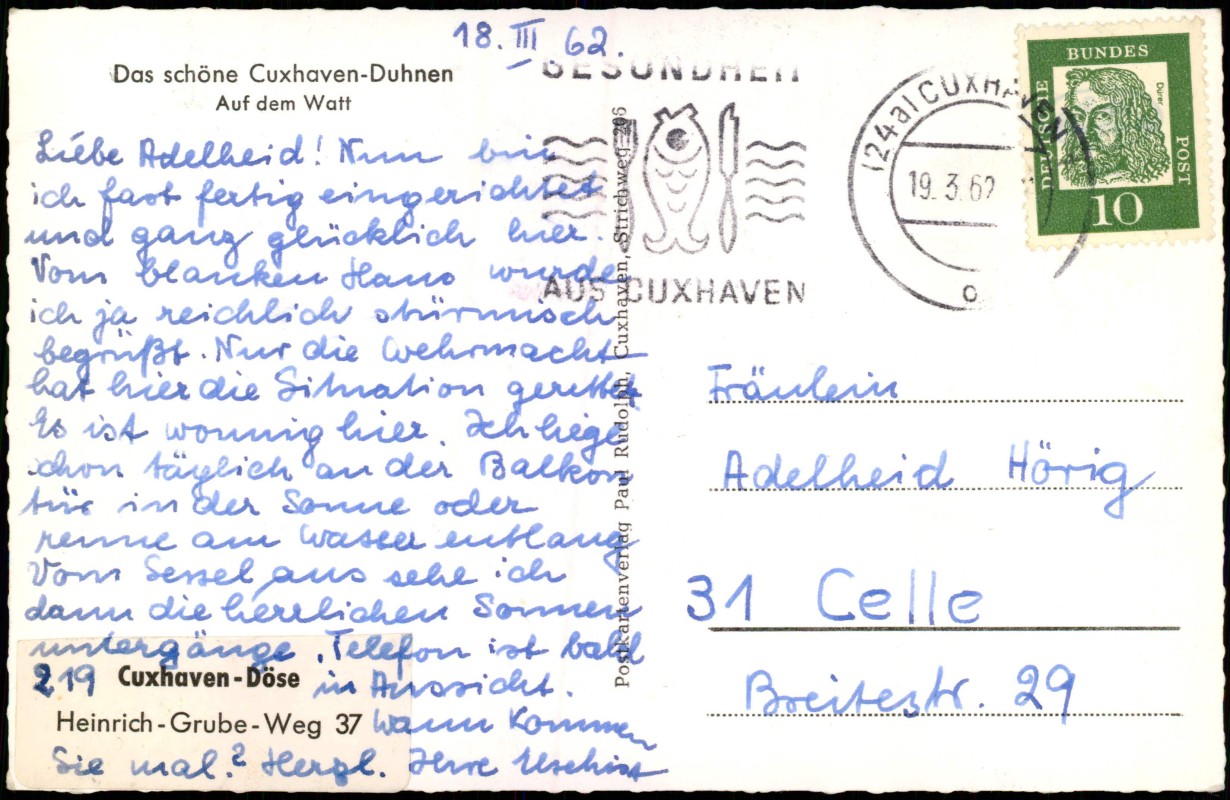 18. III 62.
Das schöne Cuxhaven-Duhnen
Auf dem Watt
Liebe Adelheid! Nun bin
ich fast fertig eingerichtet
und ganz glücklich hier.
Vom blanken Hans wurde
ich ja reichlich stürmisch
begrüßt. Nur die Wehrmacht
hat hier die Situation gerettet.
Es ist wonnig hier. Ich liege
schon täglich an der Balkon
tür in der Sonne oder
renne am Wasser entlang
Vom Sessel aus sehe ich
dann die herrlichen Sonnen
untergänge. Telefon ist bald
219 Cuxhaven-Döse in Aussicht.
Heinrich-Grube-Weg 37 Wann kommen
Sie mal? Herzl. Ihre
Postkartenverlag Paul Rudolph, Cuxhaven, Strichweg 206
GESUNDHEIT
AUS CUXHAVEN
(24a) CUXHAVEN
19.3.62
o
DEUTSCHE
BUNDES
POST
Dürer
10
Fräulein
Adelheid Hörig
31 Celle
Breitestr. 29